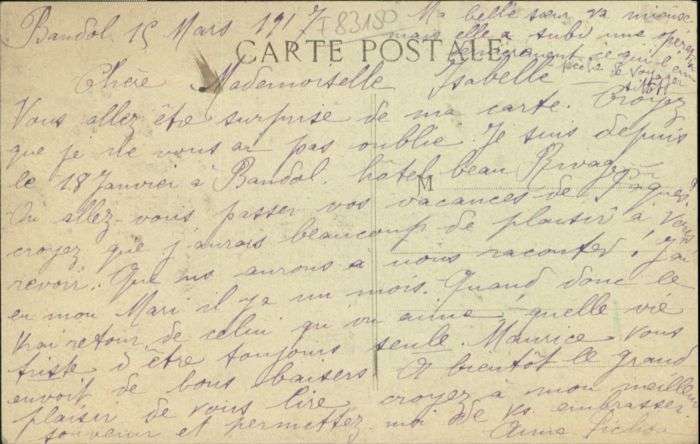 Bandol 15 Mars 1917
I 83180
Ma belle sœur va mieux
mais elle a subi une
CARTE POSTALE
ce qui
Chère Mademoiselle Isabelle
Vous allez être surprise de ma carte. Croyez
que je ne vous ai pas oublié. Je suis depuis
le 18 Janvier à Bandol. hôtel beau Rivage
M
Ou allez-vous passer vos vacances de Paques?
croyez que j'aurais beaucoup de plaisir à vous
revoir. Que ns aurons à nous raconter! J'ai
eu mon Mari il y a un mois. Quand donc le
vrai retour, de celui qu'on aime, quelle vie
triste d'être toujours seule. Maurice vous
envoit de bons baisers. A bientôt le grand
plaisir de vous lire, croyez a mon meilleur
souvenir et permettez moi de vs embrasser